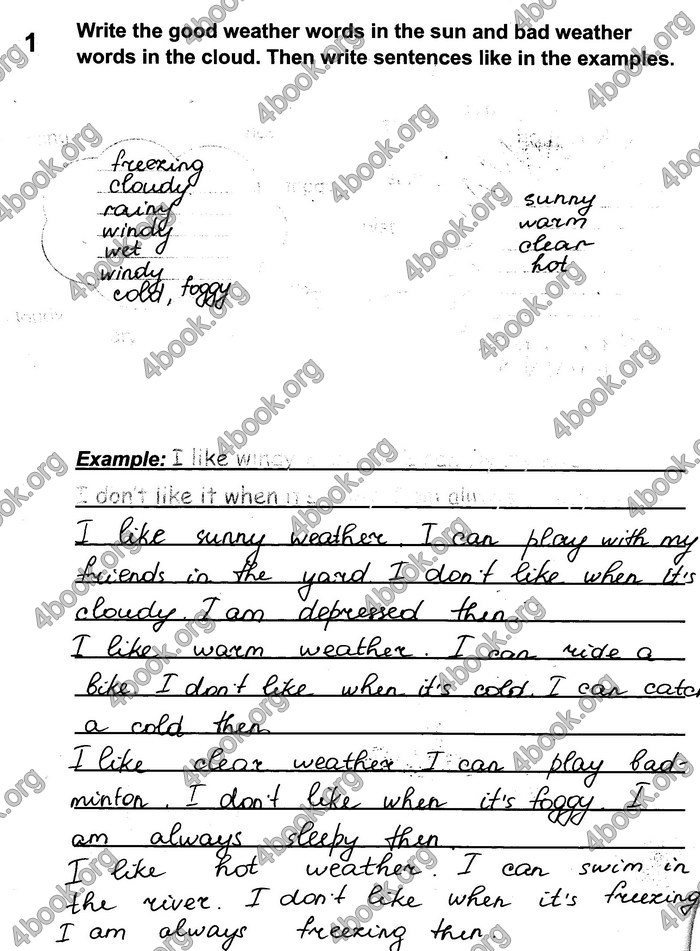 1
Write the good weather words in the sun and bad weather
words in the cloud. Then write sentences like in the examples.
freezing
cloudy
rainy
windy
wet
windy
cold, foggy
sunny
warm
clear
hot
Example: I like windy
I don't like it when
I like sunny weather. I can play with my
friends in the yard I don't like when it's
cloudy. I am depressed then.
I like warm weather. I can ride a
bike I don't like when it's cold. I can catch
a cold then.
I like clear weather I can play bad-
minton. I don't like when it's foggy. I
am always sleepy then.
I like hot weather. I can swim in
the river. I don't like when it's freezing
I am always freezing then.
4book.org